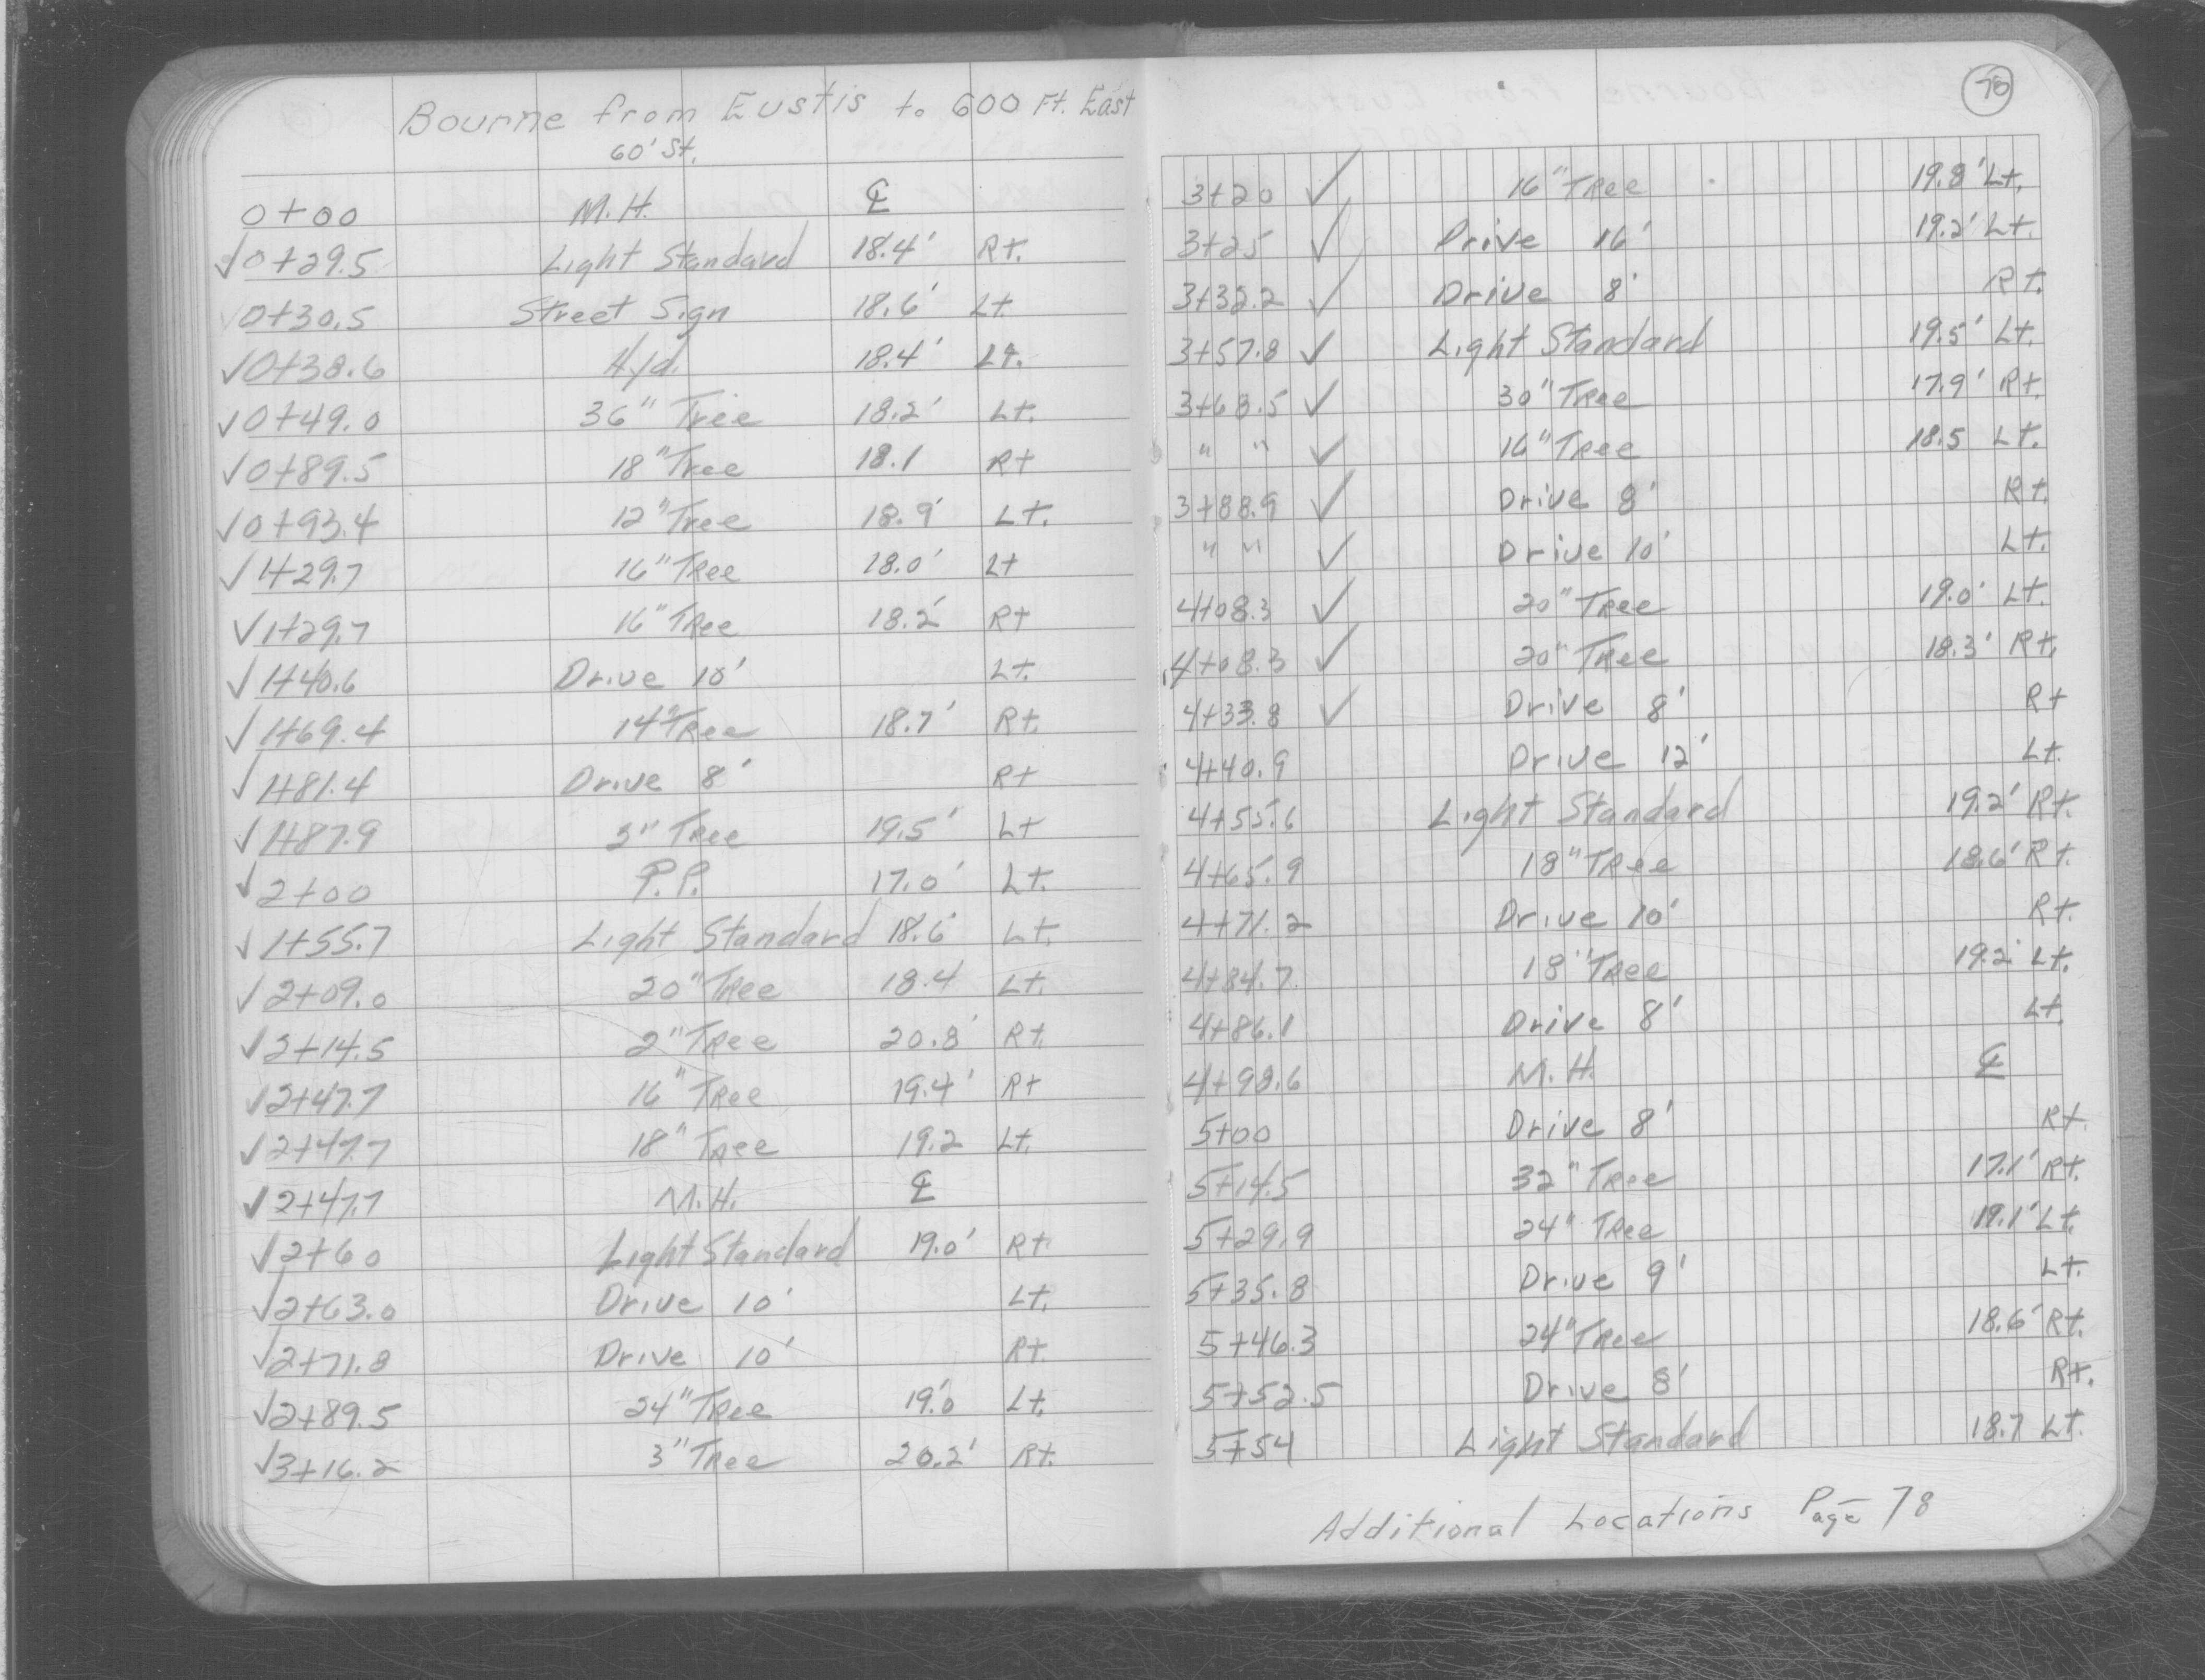 Bourne from Eustis to 600 Ft. East
60' St.
0+00 M.H. ℄
✓0+29.5 Light Standard 18.4' Rt.
✓0+30.5 Street Sign 18.6' Lt
✓0+38.6 Hyd. 18.4' Lt.
✓0+49.0 36" Tree 18.2' Lt.
✓0+89.5 18" Tree 18.1 Rt
✓0+93.4 12" Tree 18.9' Lt.
✓1+29.7 16" Tree 18.0' Lt
✓1+29.7 16" Tree 18.2' Rt
✓1+40.6 Drive 10' Lt.
✓1+69.4 14" Tree 18.7' Rt.
✓1+81.4 Drive 8' Rt
✓1+87.9 3" Tree 19.5' Lt
✓2+00 P.P. 17.0' Lt.
✓1+55.7 Light Standard 18.6' Lt.
✓2+09.0 20" Tree 18.4 Lt.
✓2+14.5 2" Tree 20.8' Rt.
✓2+47.7 16" Tree 19.4' Rt
✓2+47.7 18" Tree 19.2 Lt.
✓2+47.7 M.H. ℄
✓2+60 Light Standard 19.0' Rt
✓2+63.0 Drive 10' Lt.
✓2+71.8 Drive 10' Rt.
✓2+89.5 24" Tree 19.'0 Lt.
✓3+16.2 3" Tree 20.2' Rt.
78
3+20 ✓ 16" Tree 19.8' Lt.
3+25 ✓ Drive 16' 19.2' Lt.
3+32.2 ✓ Drive 8' Rt.
3+57.8 ✓ Light Standard 19.5' Lt.
3+68.5 ✓ 30" Tree 17.9' Rt.
" " ✓ 16" Tree 18.5 Lt.
3+88.9 ✓ Drive 8' Rt.
" " ✓ Drive 10' Lt.
4+08.3 ✓ 20" Tree 19.0' Lt.
4+08.3 ✓ 20" Tree 18.3' Rt.
4+33.8 ✓ Drive 8' Rt
4+40.9 Drive 12' Lt.
4+55.6 Light Standard 19.2' Rt.
4+65.9 18" Tree 18.6' Rt.
4+71.2 Drive 10' Rt.
4+84.7 18" Tree 19.2' Lt.
4+86.1 Drive 8' Lt.
4+98.6 M.H. ℄
5+00 Drive 8' Rt.
5+14.5 32" Tree 17.1' Rt.
5+29.9 24" Tree 19.1' Lt.
5+35.8 Drive 9' Lt.
5+46.3 24" Tree 18.6' Rt.
5+52.5 Drive 8' Rt.
5+54 Light Standard 18.7 Lt.
Additional Locations Page 78